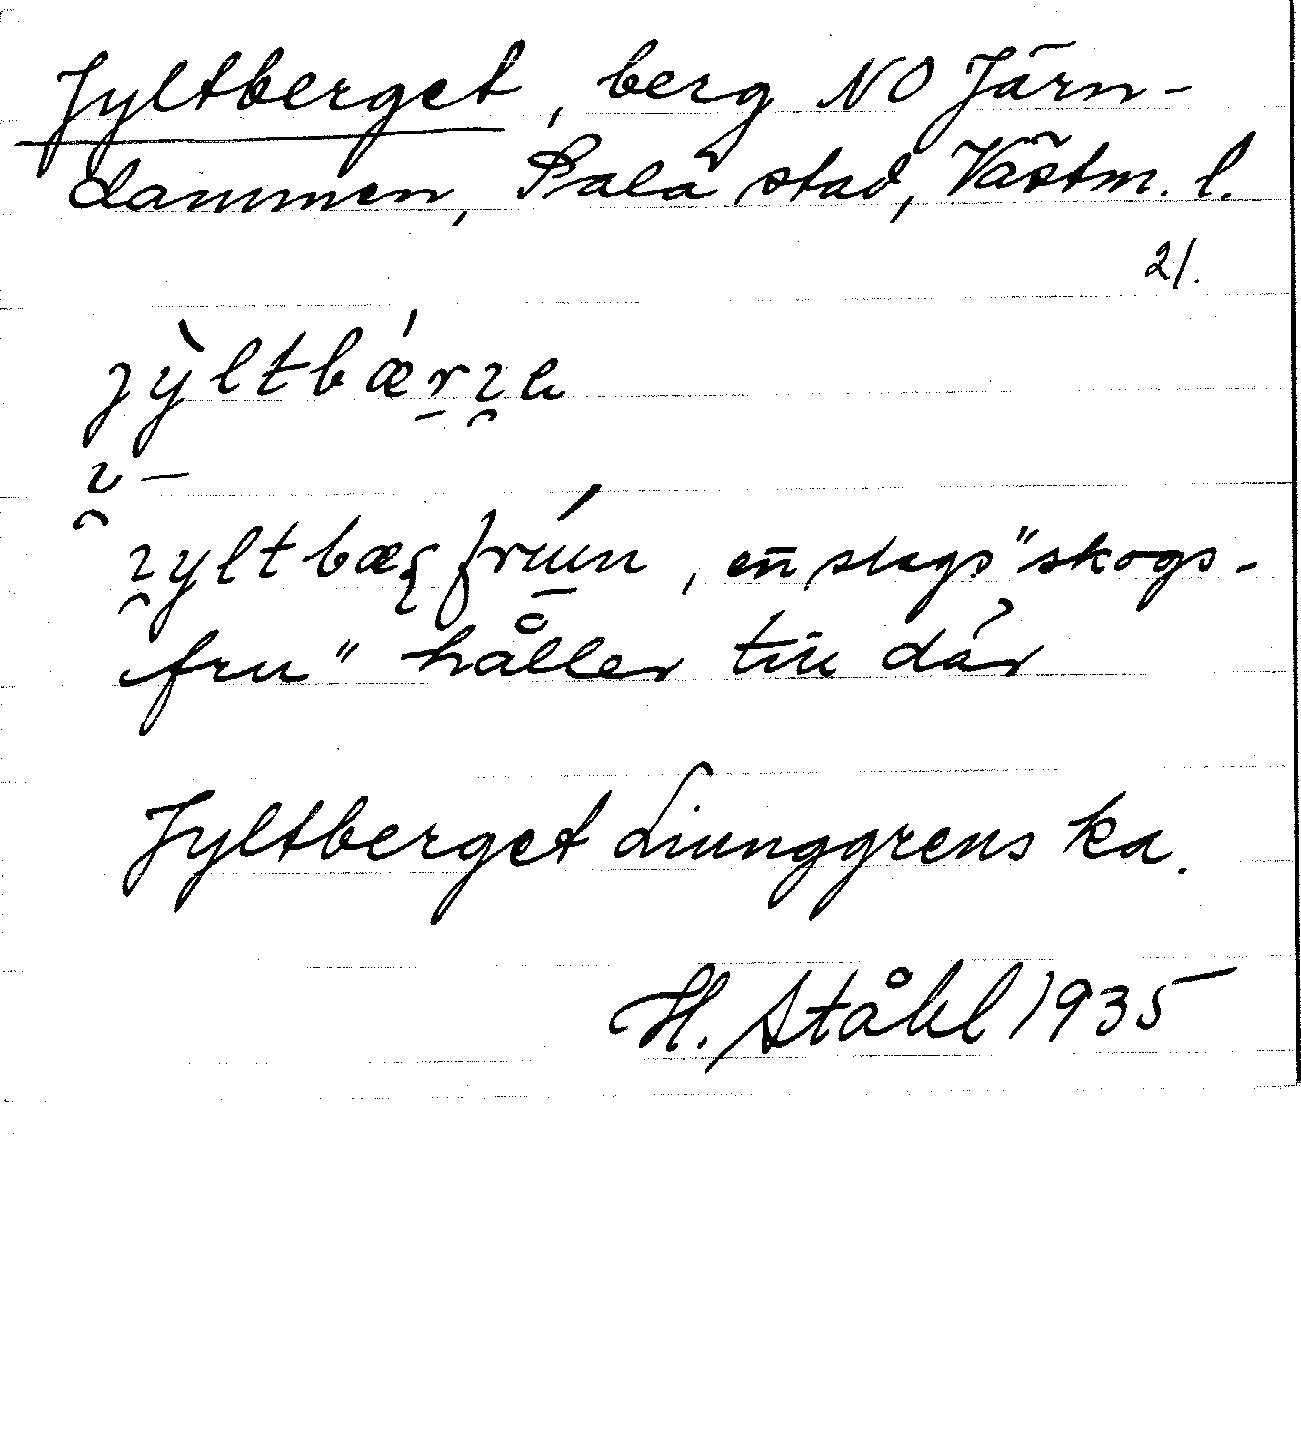 Jyltberget, berg NO Järn-
dammen, Sala stad, Västm. l.
21.
jỳltbǽrɿa
ɿ̯ –
ɿ̯yltbæ frún, en slags "skogs-
fru" håller till där
Jyltberget Liunggrens ka.
H. Ståhl 1935